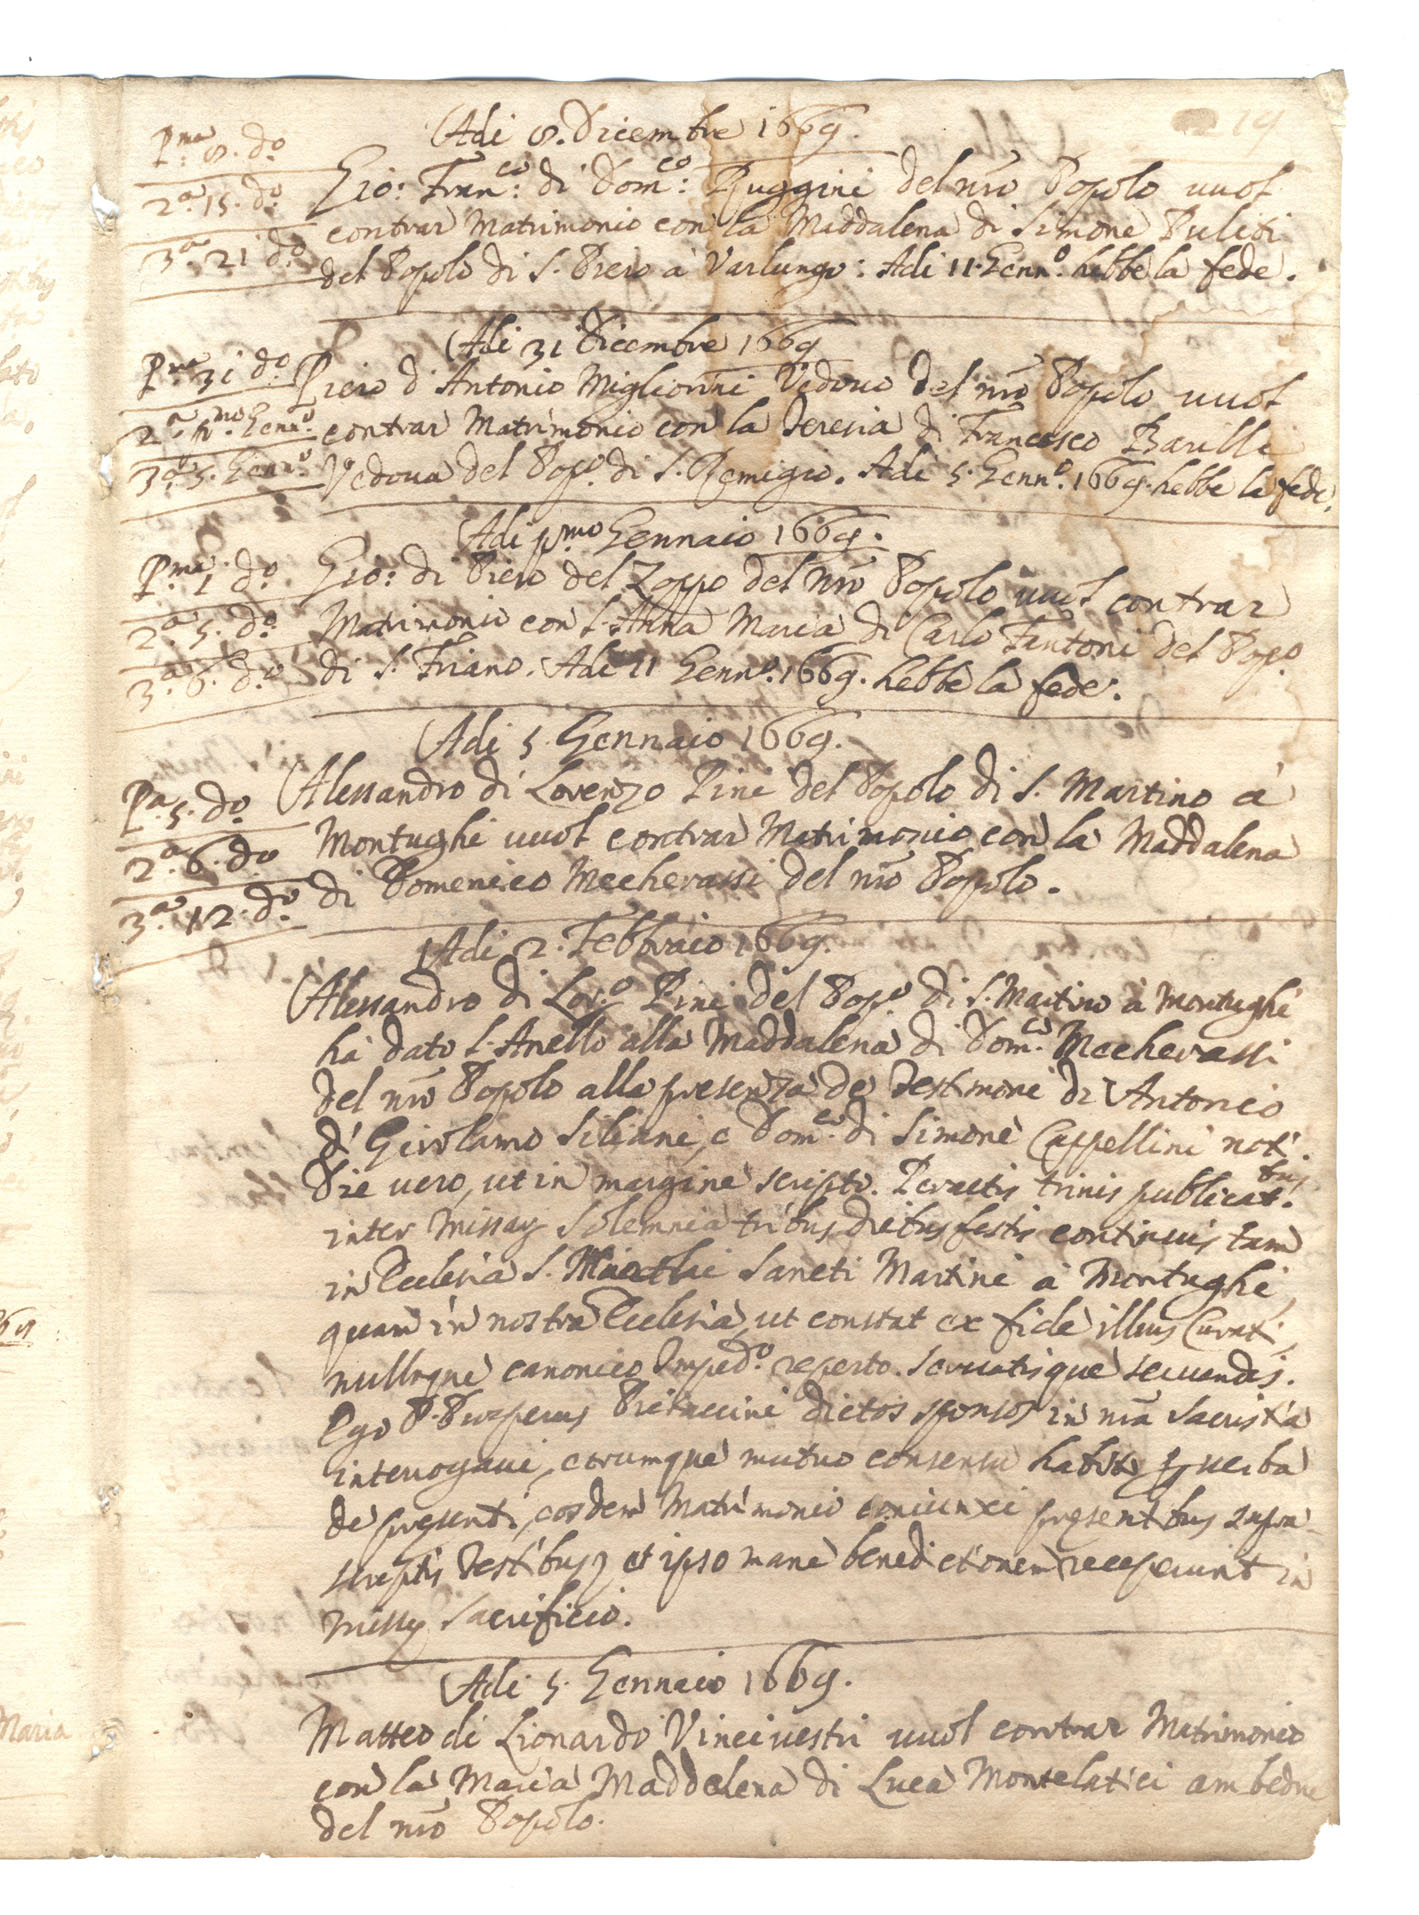 19
Adi 8. Dicembre 1669.
P.ma 8. d.o
2.a 15. d.o
3.a 21 d.o
Gio: Fran.co: di Dom.co: Ruggini del nro Popolo vuol
contrar Matrimonio con la Maddalena di Simone Puliti
del Popolo di S. Piero à Varlungo: Adi 11. Genn.o hebbe la fede.
Adi 31 Dicembre 1669
P.ma 31 d.o
2.a p.mo Genn.o
3.a 5. Genn.o
Piero d'Antonio Migliorini Vedovo del nro Popolo vuol
contrar Matrimonio con la Teresia di Francesco Barilli
Vedova del Pop.o di S. Remigio. Adi 5. Genn.o 1669. hebbe la fede.
Adi p.mo Gennaio 1669.
P.ma 1 d.o
2.a 5. d.o
3.a 6. d.o
Gio: di Piero del Zoppo del nro Popolo vuol contrar
Matrimonio con l'Anna Maria di Carlo Fantoni del Pop.o
di S. Friano. Adi 11 Genn.o 1669. hebbe la fede.
Adi 5. Gennaio 1669.
P.a 5. d.o
2.a 6. d.o
3.a 12. d.o
Alessandro di Lorenzo Pini del Popolo di S. Martino à
Montughi vuol contrar Matrimonio con la Maddalena
di Domenico Mecherassi del nro Popolo.
Adi 2. Febbraio 1669.
Alessandro di Lor.o Pini del Pop.o di S. Martino à Montughi
hà dato l'Anello alla Maddalena di Dom.co Mecherassi
del nro Popolo alla presenza de Testimoni di Antonio
di Girolamo Siliani, e Dom.co di Simone Cappellini not.
Die vero, ut in margine scripto. Peractis trinis publicat.bus
inter Missar Solemnia tribus diebus festis continuis tam
in Ecclesia S. Sancti Martini à Montughi
quam in nostra Ecclesia, ut constat ex fide illius Curati,
nulloque canonico Imped.o reperto. servatisque servandis.
Ego P. Prosperus dictos sponsos in nra Sacristia
interrogavi, eorumque mutuo consensu habito p verba
de presenti, eosdem Matrimonio coniunxi presentibus supra-
scriptis Testibus, et ipso mane benedictionem receperunt in
Misse Sacrificio.
Adi 5. Gennaio 1669.
Matteo di Lionardo Vincivestri vuol contrar Matrimonio
con la Maria Maddalena di Luca Montelatici ambedue
del nro Popolo.
Maria